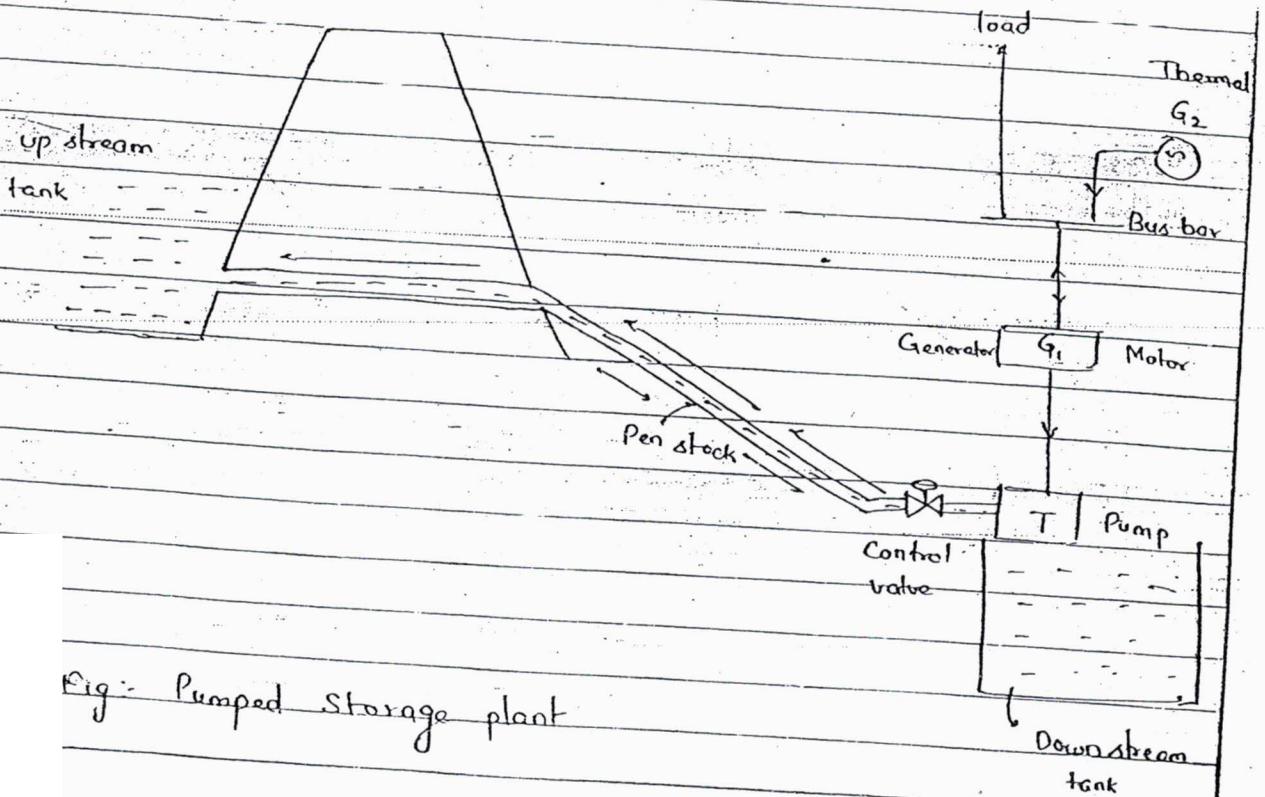 load
Thermal
G2
up stream
tank
Bus bar
Generator
G1
Motor
Pen stock
T
Pump
Control
valve
Fig:- Pumped Storage plant
Downstream
tank